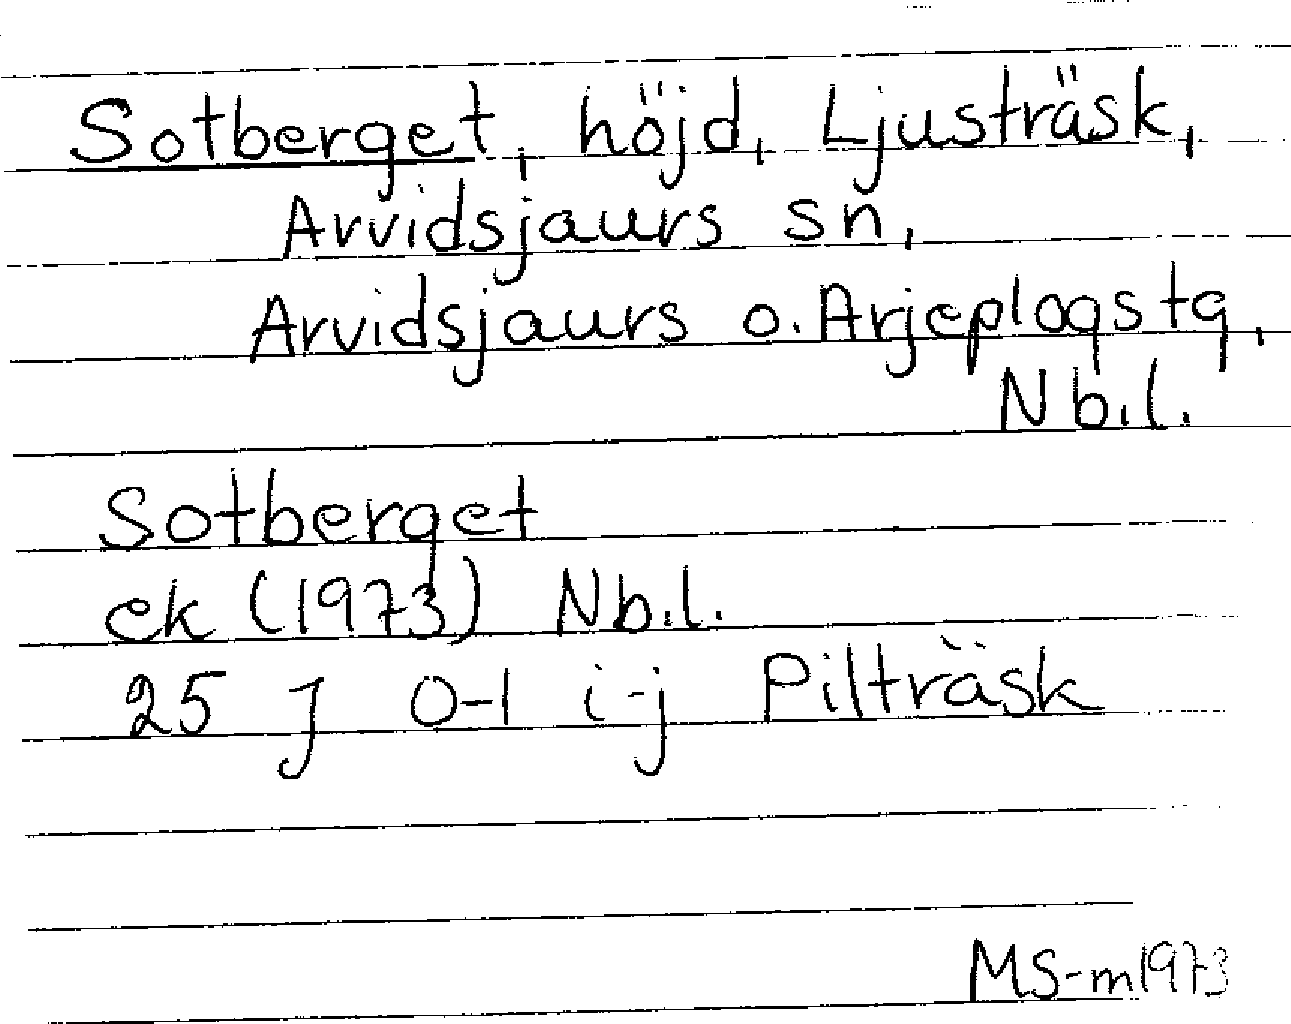 Sotberget, höjd, Ljusträsk,
Arvidsjaurs sn,
Arvidsjaurs o. Arjeplogs tg,
Nb.l.
Sotberget
ek (1973) Nb.l.
25 J 0-1 i-j Pilträsk
MS-m1973